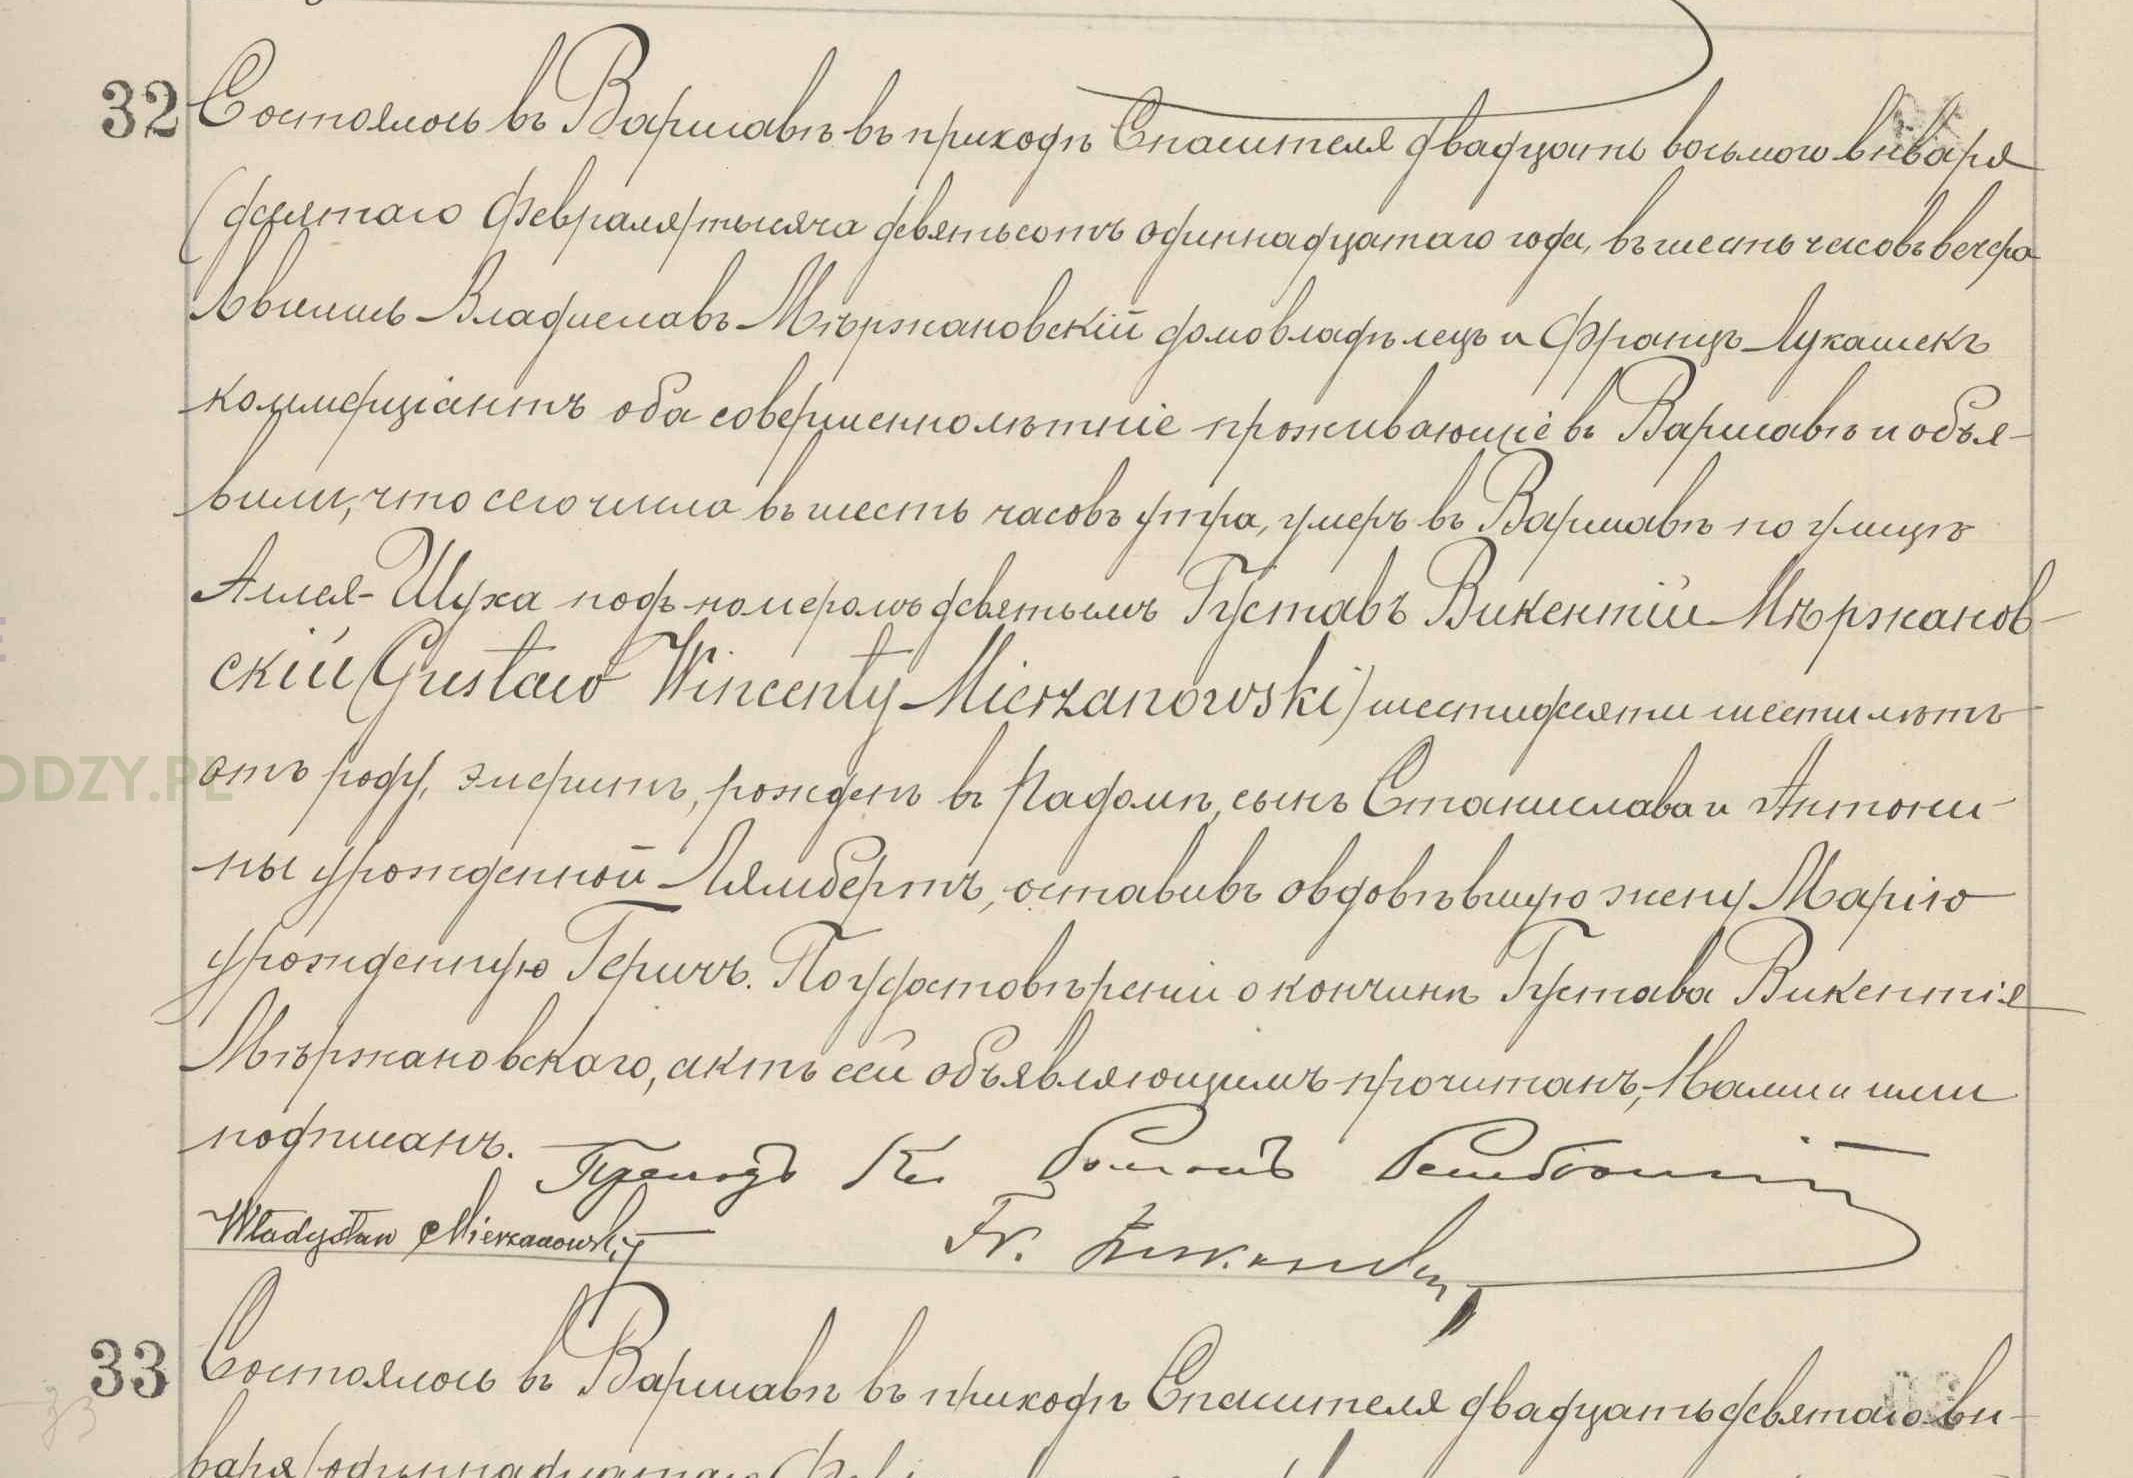 32 Состоялось въ Варшавѣ въ приходѣ Спасителя двадцать восьмого Января
(десятаго Февраля) тысяча девятьсотъ одиннадцатаго года, въ шесть часовъ вечера
Явились Владиславъ Мѣржановскій домовладѣлецъ и Францъ Лукашекъ
коммерціантъ оба совершеннолѣтніе проживающіе въ Варшавѣ и объя-
вили, что сего числа въ шесть часовъ утра, умеръ въ Варшавѣ по улицѣ
Аллея-Шуха подъ номеромъ девятымъ Густавъ Викентій Мѣржанов-
скій (Gustaw Wincenty Mierzanowski) шестидесяти шести лѣтъ
отъ роду, эмеритъ, рожденъ въ Радомѣ, сынъ Станислава и Антони-
ны урожденной Лямбертъ, оставивъ овдовѣвшую жену Марію
урожденную Геричъ. По удостовѣреніи о кончинѣ Густава Викентія
Мѣржановскаго, актъ сей объявляющимъ прочитанъ, Нами и ими
подписанъ. Кс. Романъ
Władysław Mierzanowski Fr.
33 Состоялось въ Варшавѣ въ приходѣ Спасителя двадцать девятаго Ян-
варя (одиннадцатаго
ODZY.PL